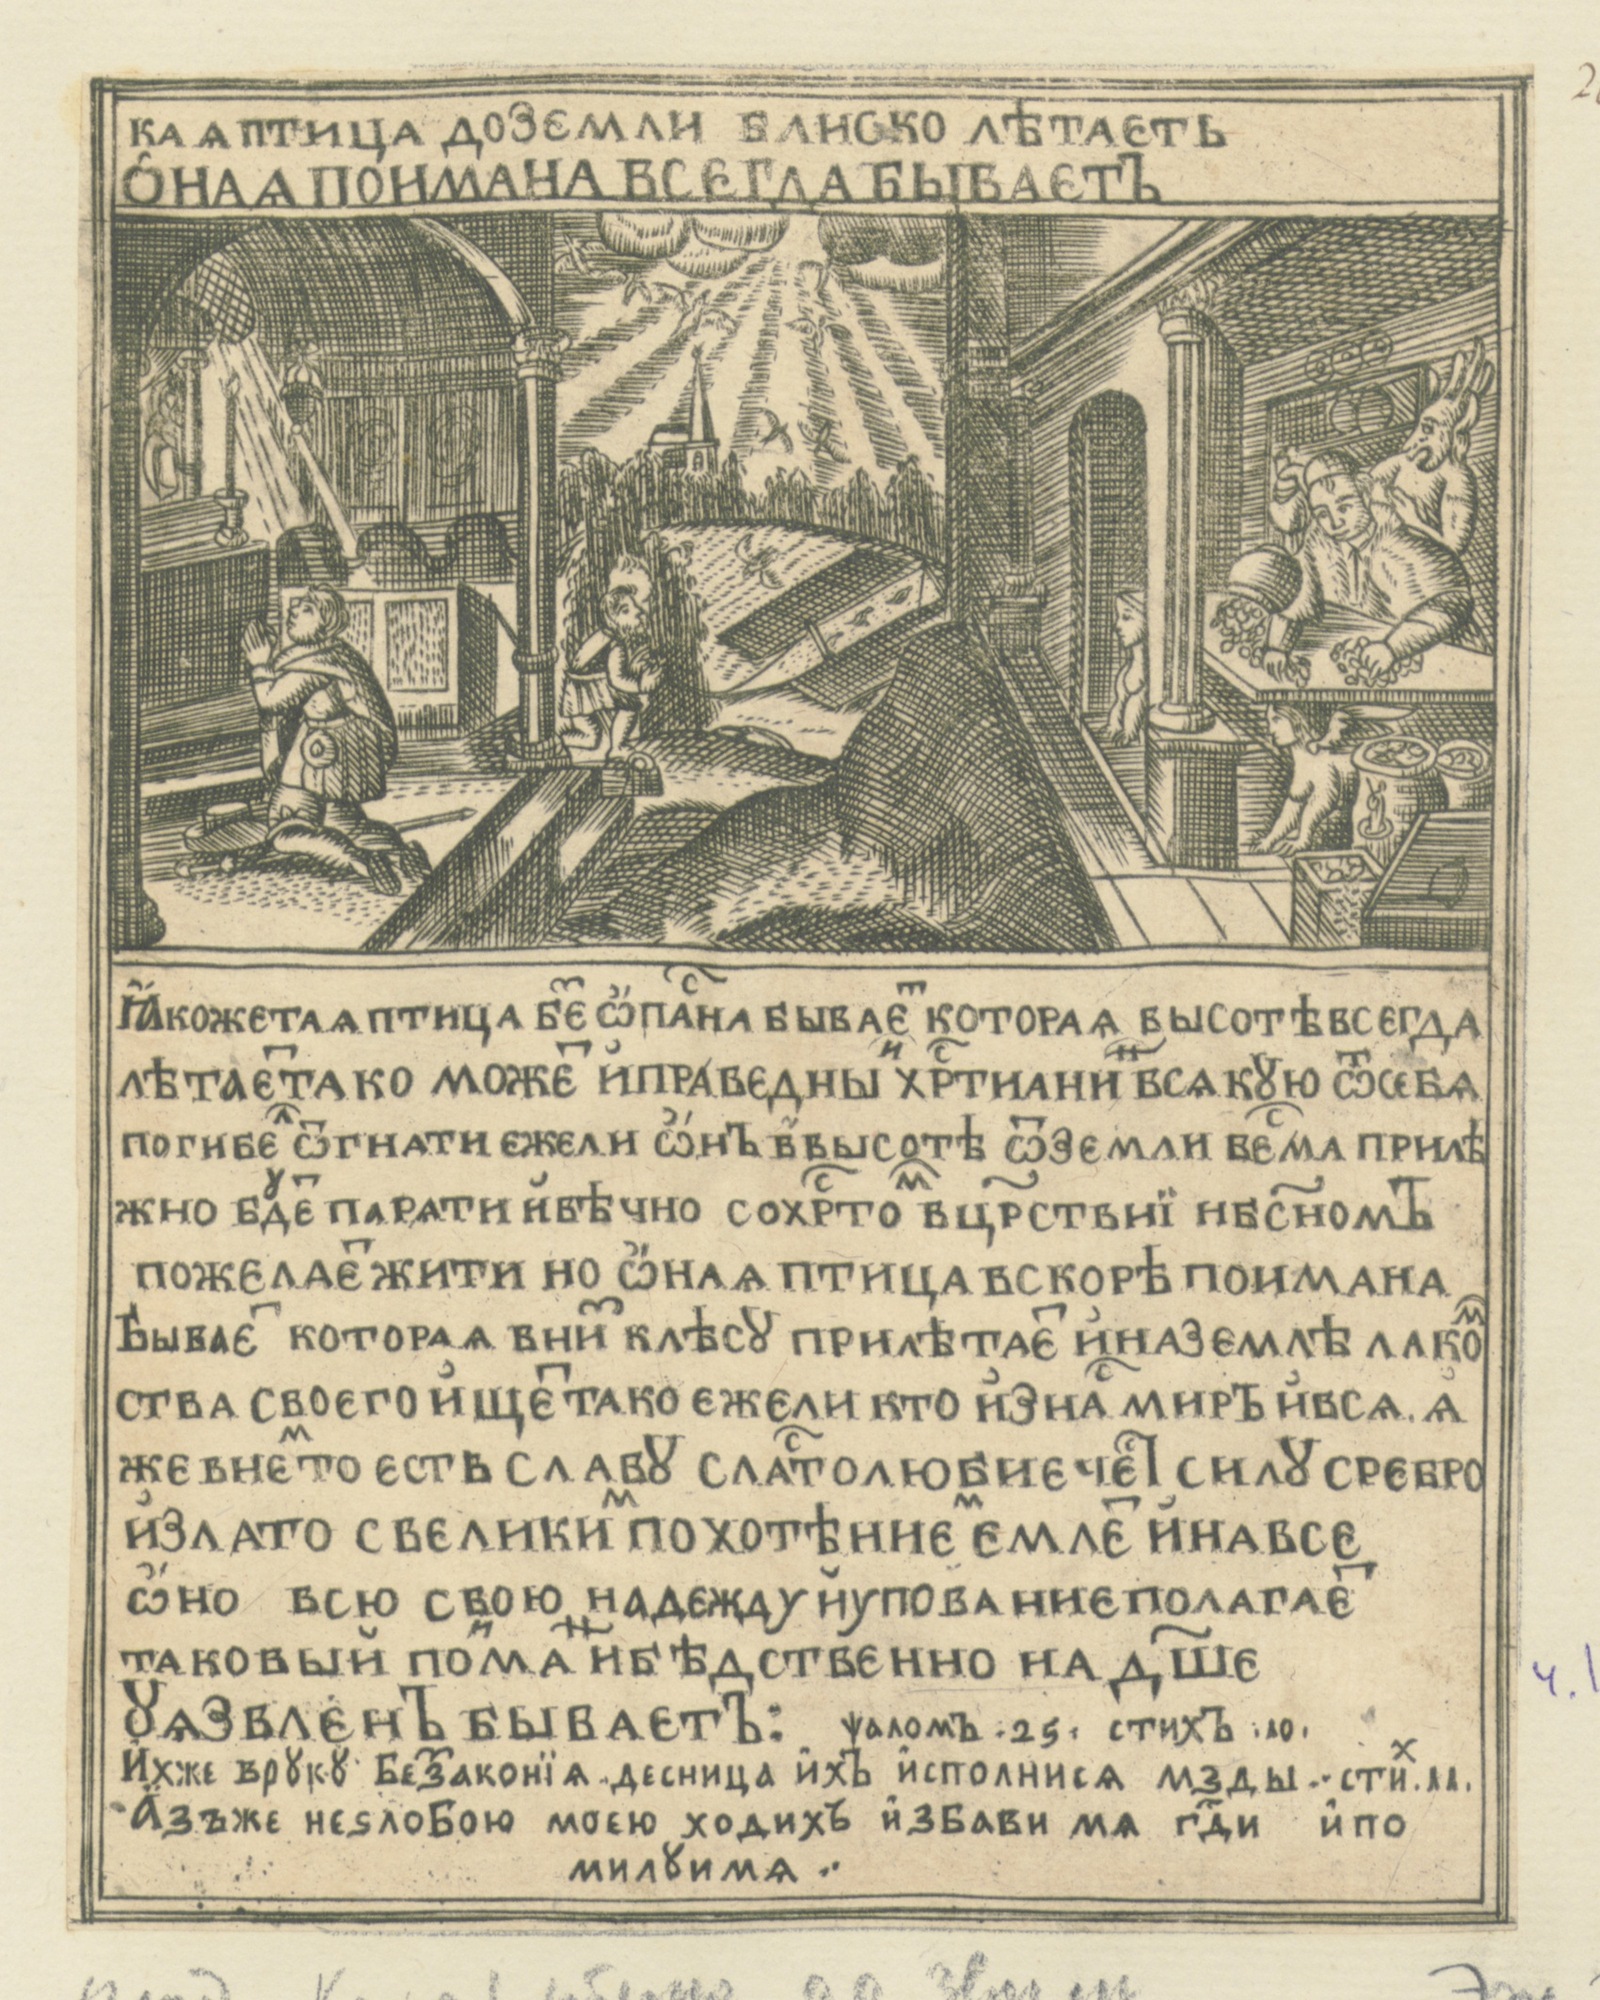 КАѦ ПТИЦА ДОЗЕМЛИ БЛИСКО ЛѢТАЄТЬ
ОНАѦ ПОИМАНА ВСЄГДА БЫВАЄТЪ
ꙖКОЖЕ ТАѦ ПТИЦА БЕ́ ѾПА́СНА БЫВАЄⷮ КОТОРАѦ ВЫСОТѢ ВСЕГДА
ЛѢТАЄⷮ ТАКО МОЖЕⷮ И ПРАВЕДНЫⷤ ХРⷭТИАНИⷩ ВСѦКꙊЮ Ѿ СЕБѦ
ПОГИБЕⷧ ѾГНАТИ ЕЖЕЛИ ѠНЪ ВВЫСОТѢ Ѿ ЗЕМЛИ ВЕⷭМА ПРИЛѢ
ЖНО БꙊДЕⷮ ПАРѦТИ И ВѢЧНО СО ХРⷭТОⷨ В ЦР҃СТВИЇ НБ҃СНОМЪ
ПОЖЕЛАЄⷮ ЖИТИ НО ѠНАѦ ПТИЦА ВСКОРѢ ПОИМАНА
БЫВАЄⷮ КОТОРАѦ ВНИⷥ КЛѢСꙊ ПРИЛѢТАЄⷮ И НА ЗЕМЛѢ ЛАКОⷨ
СТВА СВОЕГО ИЩЕⷮ ТАКО ЕЖЕЛИ КТО ИЗ НАⷭ МИРЪ И ВСѦ. Ѧ
ЖЕ ВНЕⷨ ТО ЕСТЬ СЛАВꙊ СЛАⷭТОЛЮБИЕ ЧЕⷭІ СИЛꙊ СРЕБРО
И ЗЛАТО С ВЕЛИКИⷨ ПОХОТѢНИЕⷨ ЕМЛЕⷮ И НА ВСЕ
ѠНО ВСЮ СВОЮ НАДЕЖДУ И УПОВАНИЕ ПОЛАГАЕⷮ
ТАКОВЫЙ ПОИⷨМАⷩ И БѢДСТВЕННО НА ДШ҃Е
ꙊѦЗВЛЕНЪ БЫВАЕТЪ: ѱаломъ .25. стихъ .10.
Ихже врꙋкꙋ беззаконїѧ . десница ихъ исполнисѧ мзды .. стиⷯ.11.
Азъже неѕлобою моею ходихъ избави мѧ гдⷭи и по
милꙋи мѧ ..